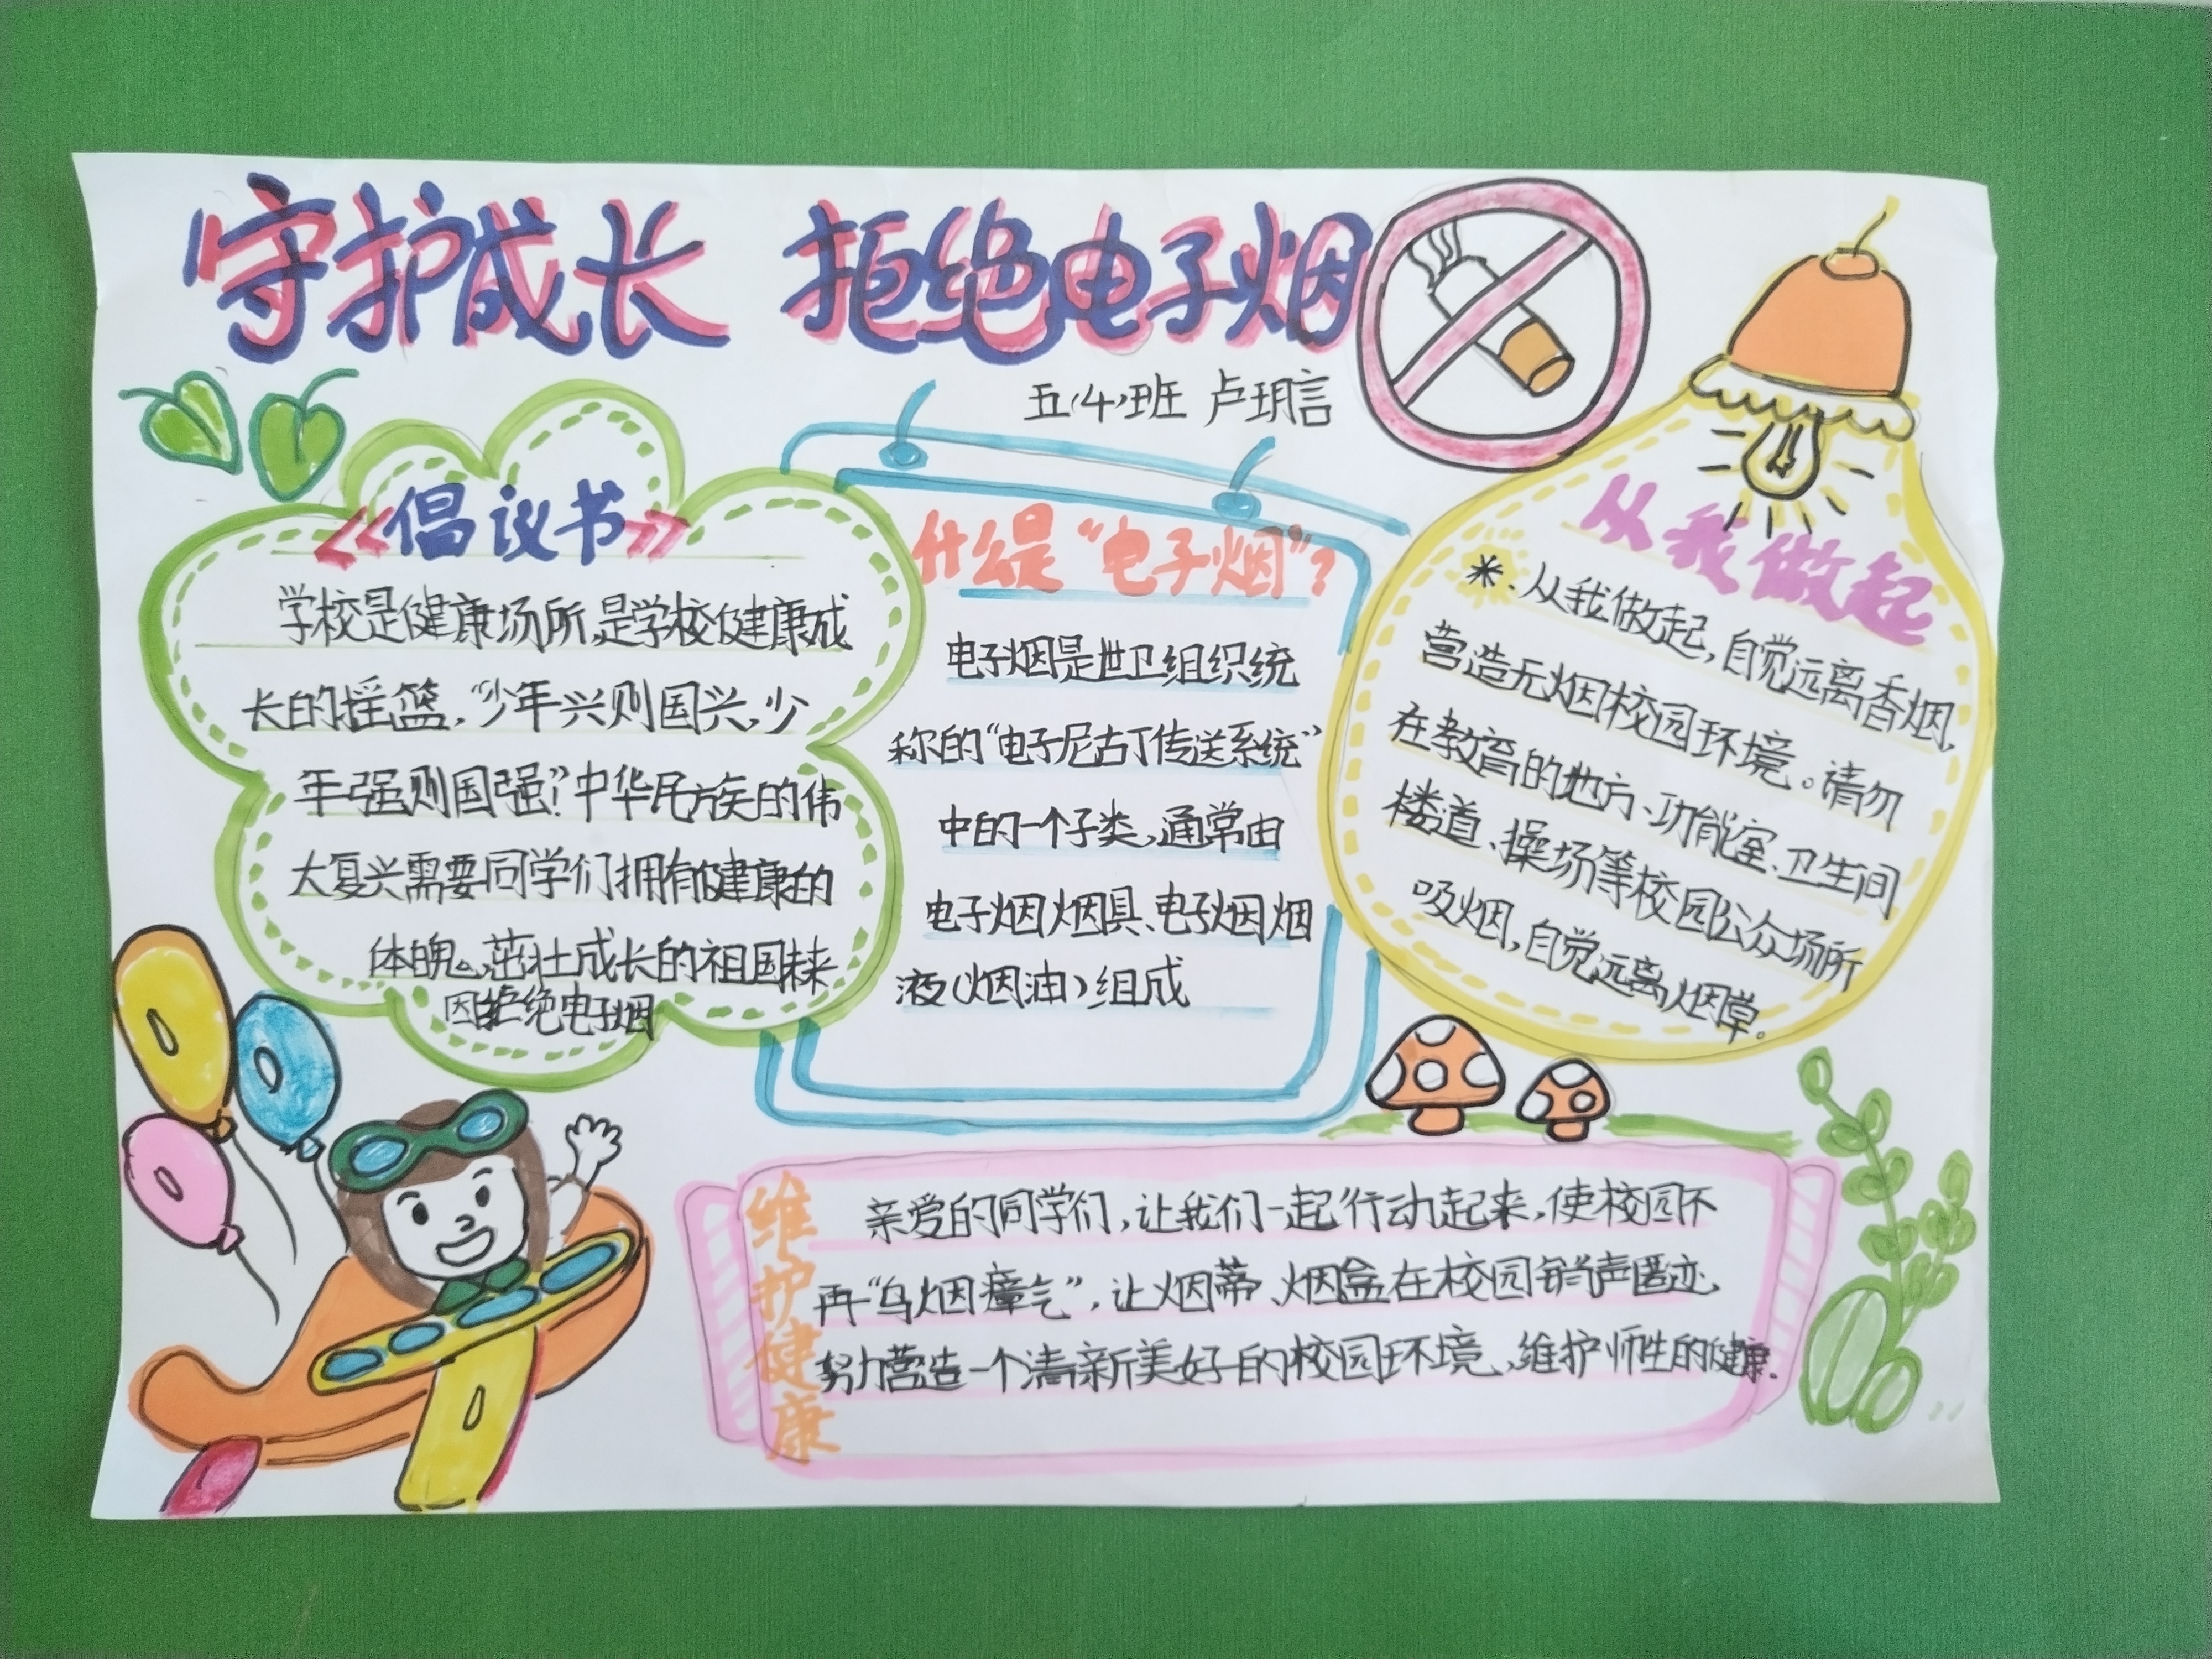 守护成长 拒绝电子烟
五(4)班 卢玥言
《倡议书》
学校是健康场所,是学校健康成
长的摇篮,“少年兴则国兴,少
年强则国强!”中华民族的伟
大复兴需要同学们拥有健康的
体魄,茁壮成长的祖国未来
因拒绝电子烟
什么是“电子烟”?
电子烟是世卫组织统
称的“电子尼古丁传送系统”
中的一个子类,通常由
电子烟烟具、电子烟烟
液(烟油)组成
从我做起
*、从我做起,自觉远离香烟,
营造无烟校园环境。请勿
在教育的地方、功能室、卫生间
楼道、操场等校园公众场所
吸烟,自觉远离烟草。
维护健康
亲爱的同学们,让我们一起行动起来,使校园不
再“乌烟瘴气”,让烟蒂、烟盒在校园销声匿迹,
努力营造一个清新美好的校园环境、维护师生的健康.